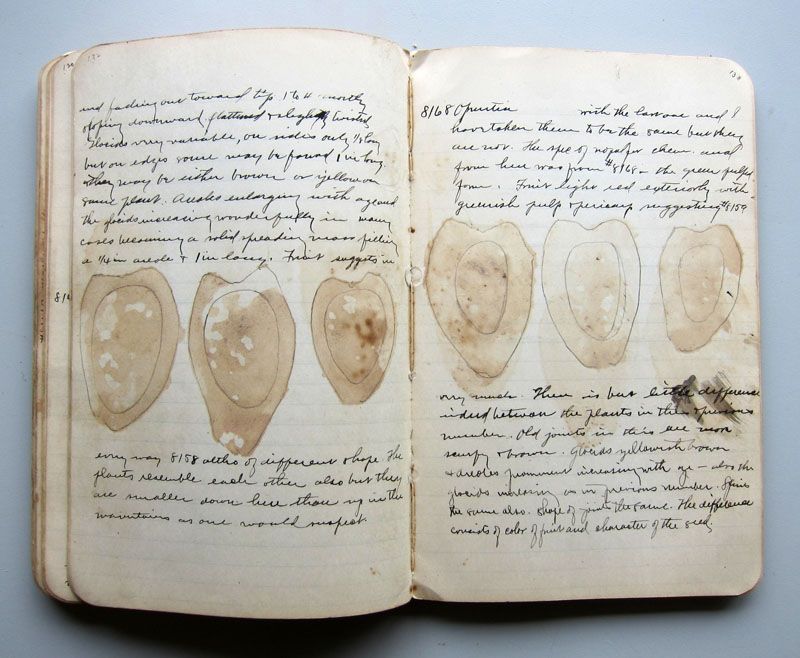 130
and fading out toward tip. 1 to 4 mostly
sloping downward flattened & slightly twisted
Glocids very variable, on sides only 1/8 long
but on edges some may be found 1 in long.
& they may be either brown or yellow on
same plant. Areoles enlarging with age and
the glocids increasing wonderfully in many
cases becoming a solid spreading mass filling
a 1/4 in areole & 1 in long. Fruit suggests in
every way 8158 altho of different shape. The
plants resemble each other also but they
are smaller down here than up in the
mountains as one would suspect.
8168 Opuntia with the last one and I
have taken them to be the same but they
are not. The spec of for chem. and
from here was from #8168 – the green pulped
form. Fruit light red exteriorly with
greenish pulp & pericarp suggesting #8159
very much. There is but little difference
indeed between the plants in this & previous
number. Old joints in this are more
scurfy & brown. Glocids yellowish brown
& areoles prominent increasing with age – also the
glocids increasing as in previous number. Spines
the same also. Shape of joints the same. The difference
consists of color of fruit and character of the seed.